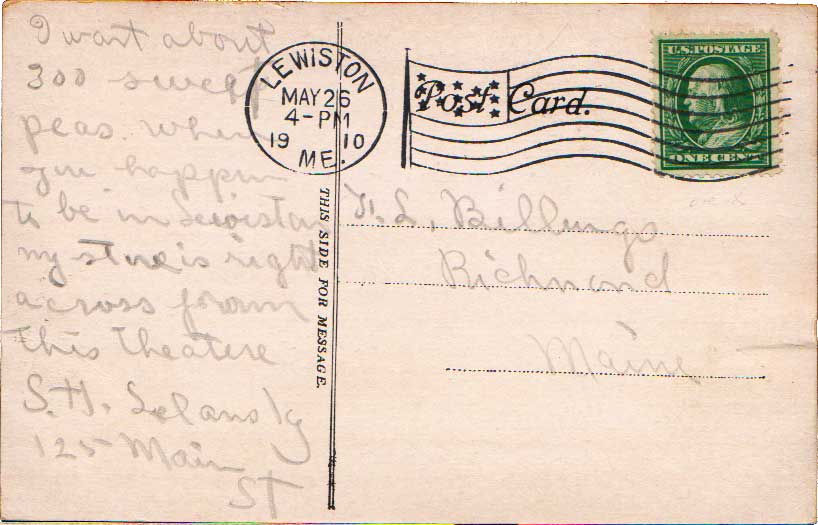 I want about
300 sweet
peas. when
you happin
to be in Lewiston
my store is right
across from
this theatere
S. H. Selansky
125 Main
ST
LEWISTON
MAY 26
4-PM
19 10
ME.
Post Card.
U.S. POSTAGE
ONE CENT
THIS SIDE FOR MESSAGE.
F. L. Billings
Richmond
Maine